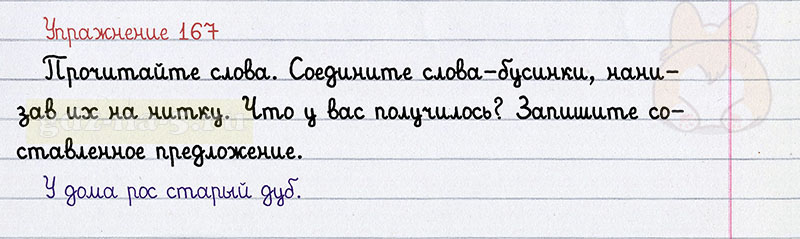 Упражнение 167
Прочитайте слова. Соедините слова-бусинки, нани-
зав их на нитку. Что у вас получилось? Запишите со-
ставленное предложение.
У дома рос старый дуб.